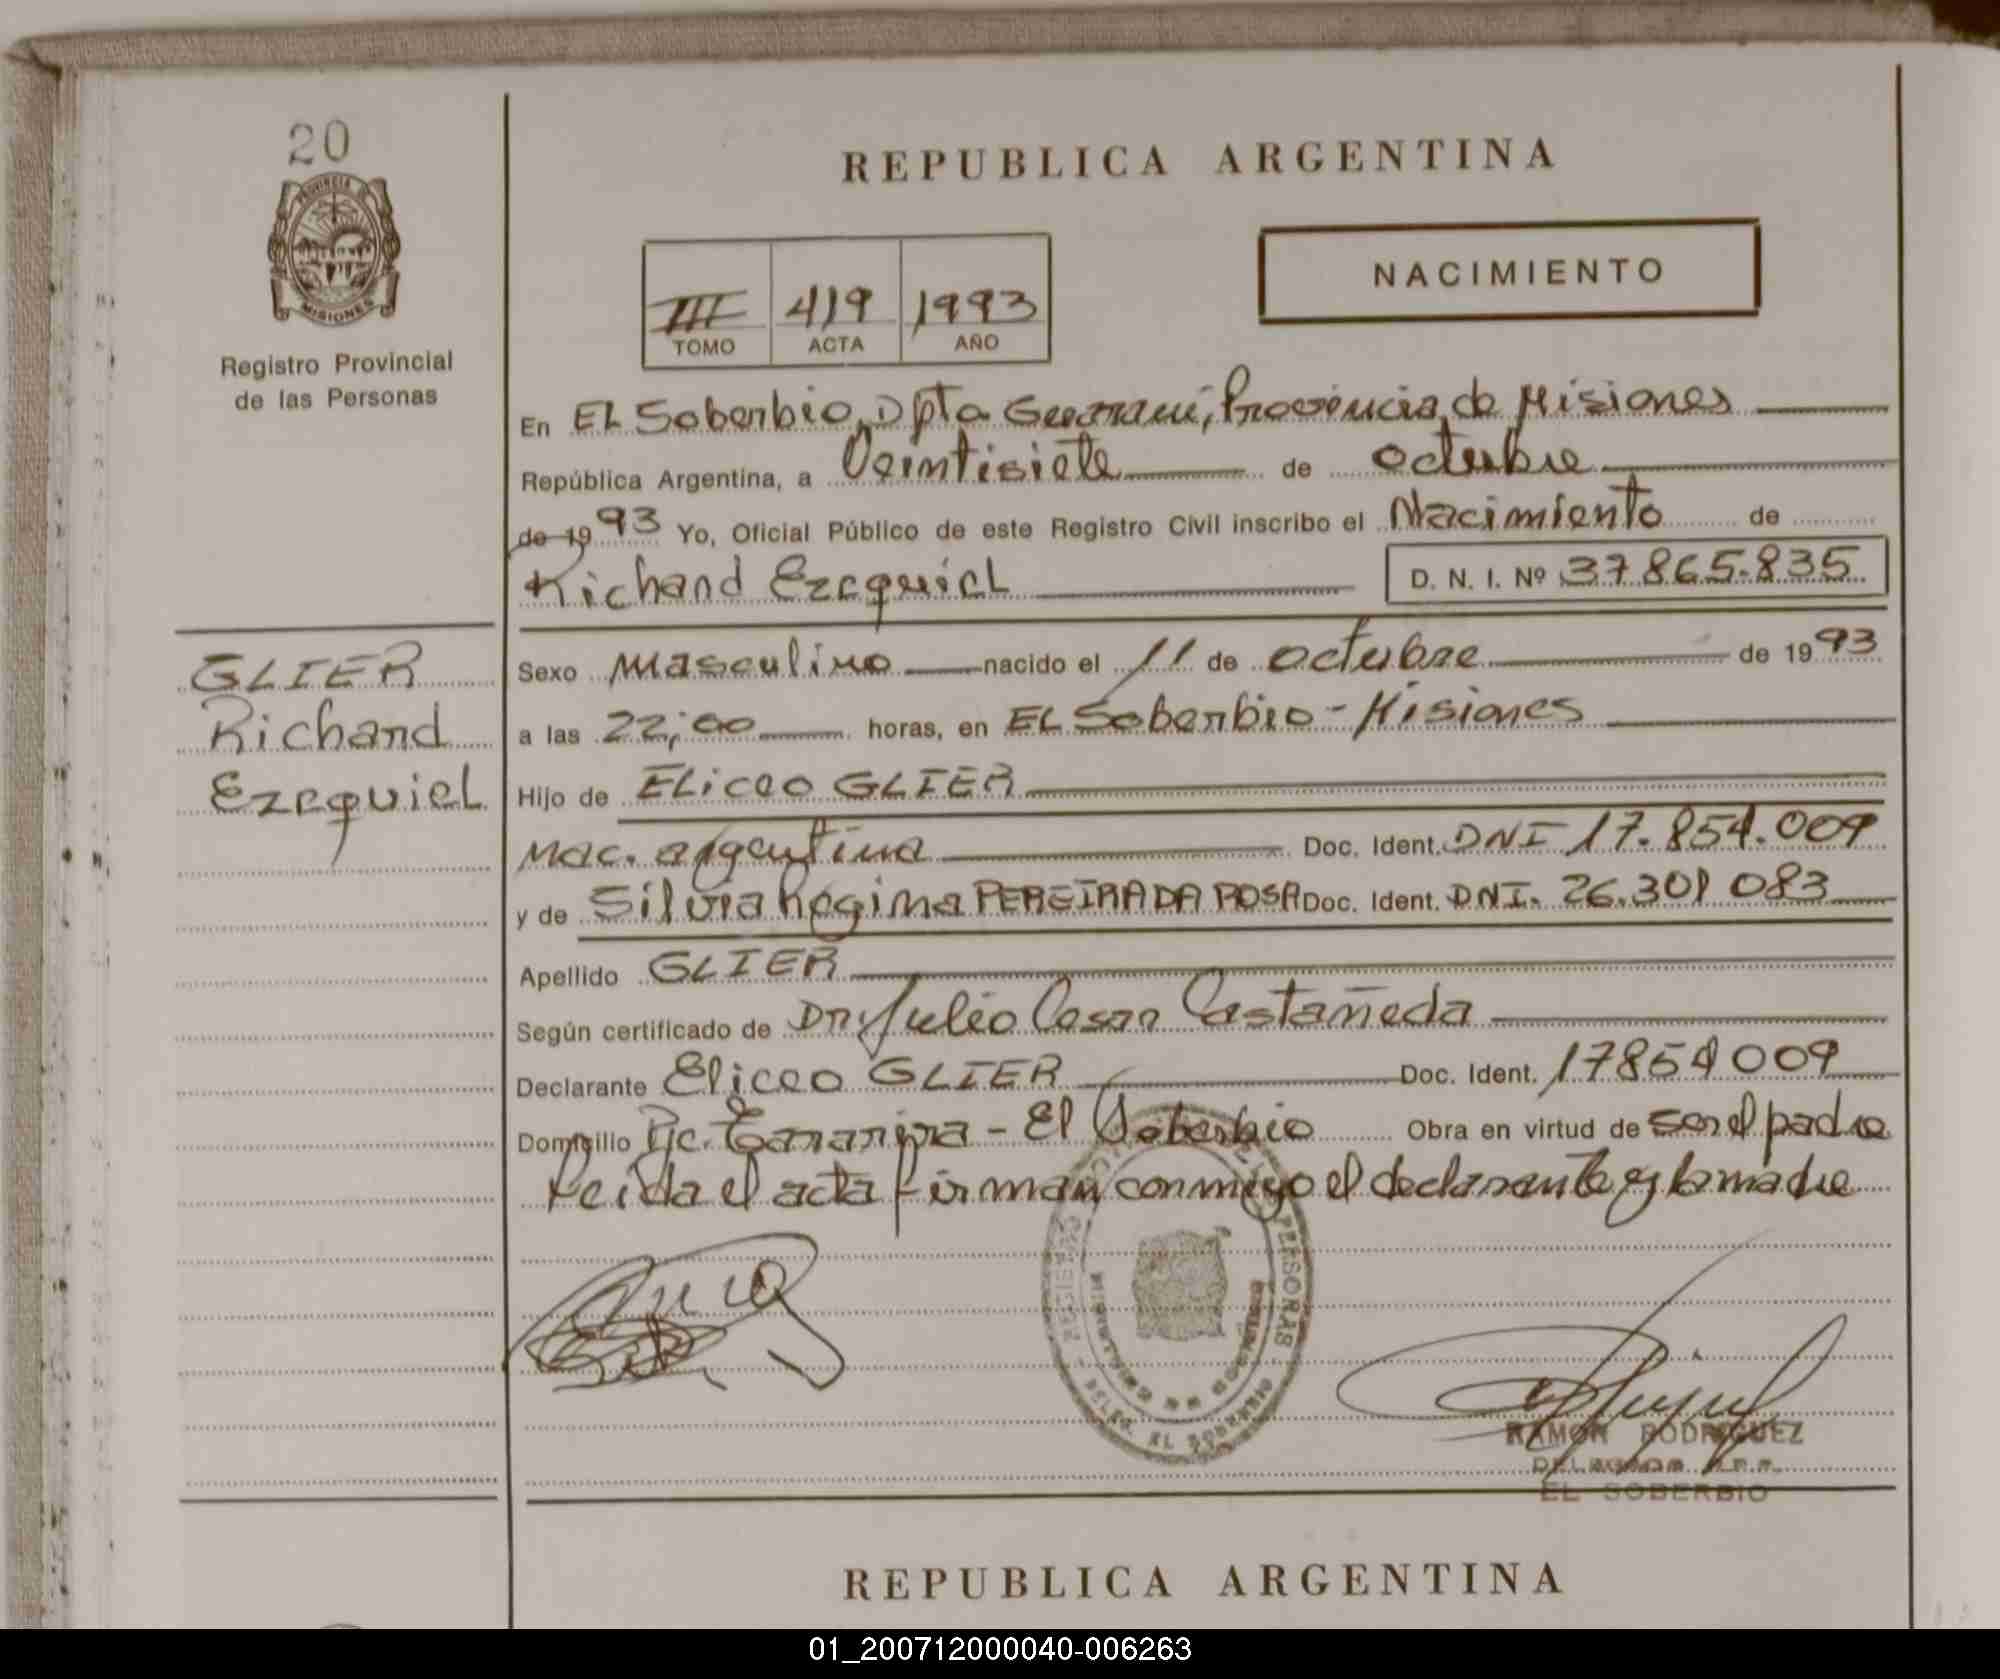 20
PROVINCIA DE
MISIONES
Registro Provincial
de las Personas
REPUBLICA ARGENTINA
NACIMIENTO
III 419 1993
TOMO ACTA AÑO
En EL Soberbio, Dpto Guarani, Provincia de Misiones
República Argentina, a Veintisiete de octubre
de 1993 Yo, Oficial Público de este Registro Civil inscribo el Nacimiento de
Richard Ezequiel D. N. I. Nº 37865.835
GLIER
Richard
Ezequiel
Sexo Masculino nacido el 11 de octubre de 1993
a las 22;00 horas, en EL Soberbio - Misiones
Hijo de ELiceo GLIER
Nac. argentina Doc. Ident. DNI 17.854.009
y de Silvia Regina PEREIRA DA ROSA Doc. Ident. DNI. 26.301 083
Apellido GLIER
Según certificado de Dr. Julio Cesar Castañeda
Declarante Eliceo GLIER Doc. Ident. 17854009
Domicilio Pje. - El Soberbio Obra en virtud de ser el padre
Leida el acta firman conmigo el declarante y la madre
PERSONAS
EL SOBERBIO
RAMON RODRIGUEZ
EL SOBERBIO
REPUBLICA ARGENTINA
01_200712000040-006263